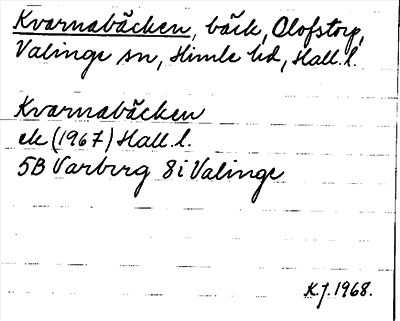 Kvarnabäcken, bäck, Olofstorp,
Valinge sn, Himle hd, Hall. l.
Kvarnabäcken
ek (1967) Hall. l.
5B Varberg 8i Valinge
K.J. 1968.